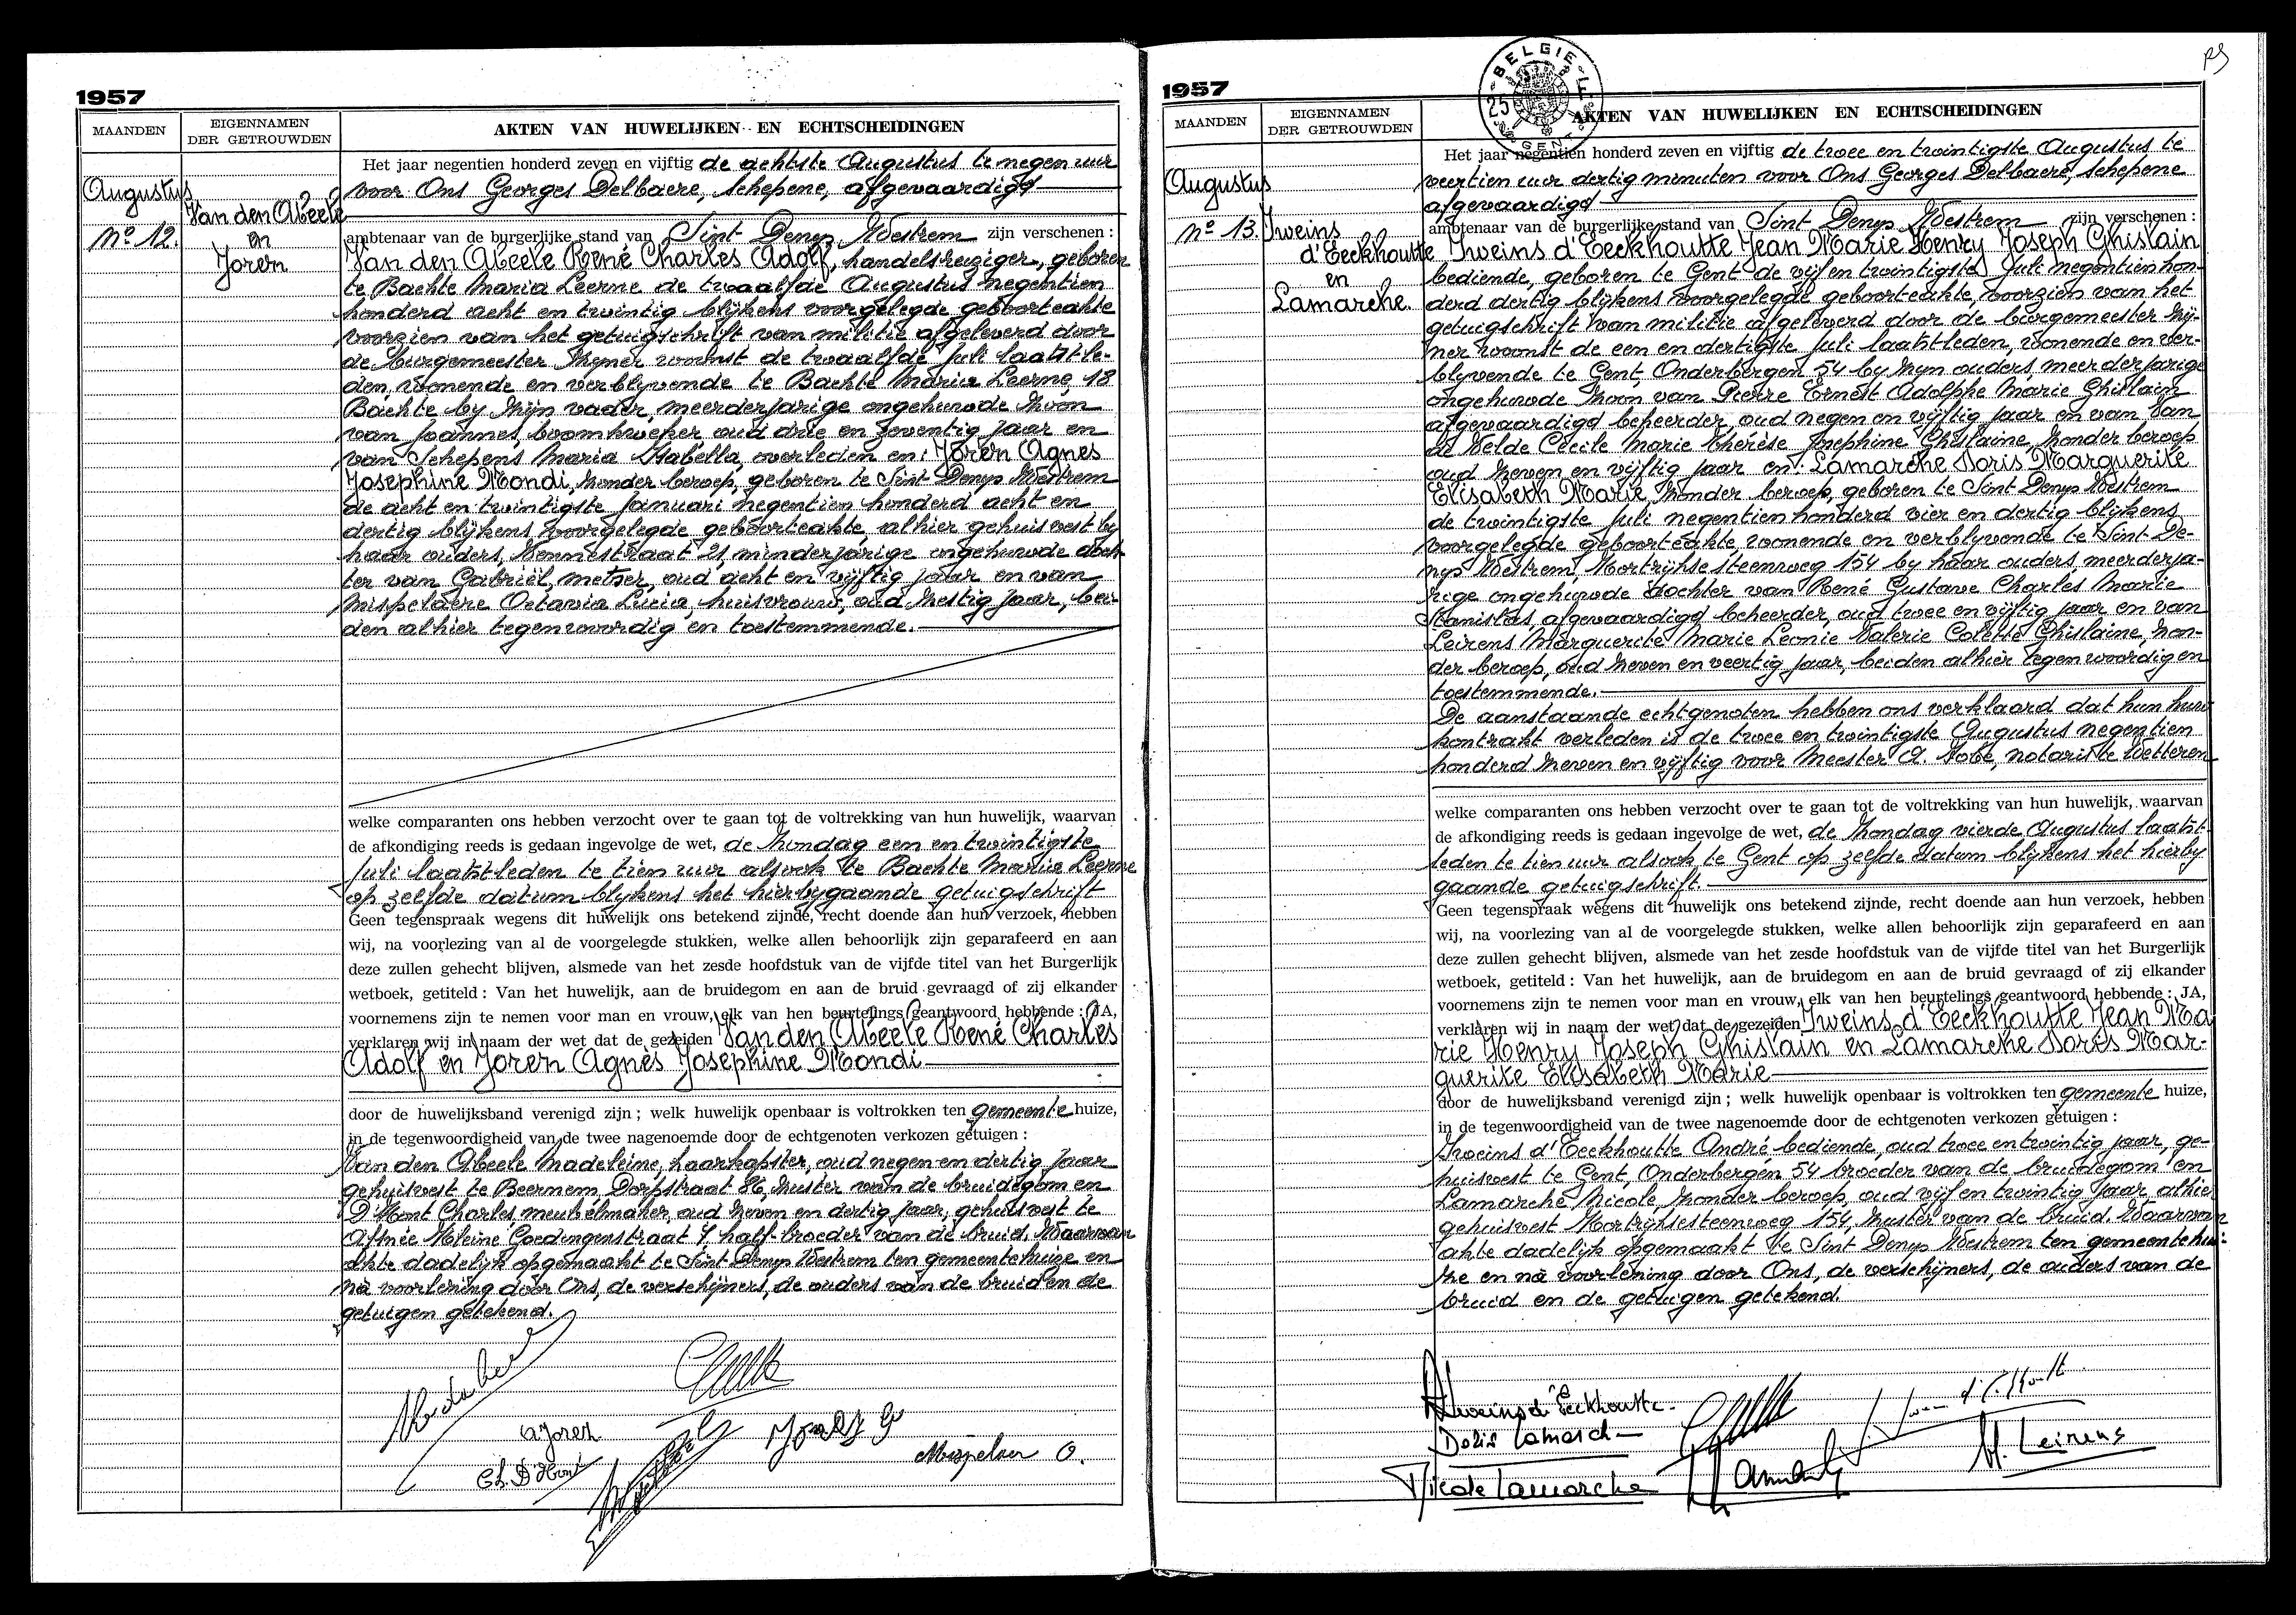 1957
MAANDEN
EIGENNAMEN
DER GETROUWDEN
AKTEN VAN HUWELIJKEN EN ECHTSCHEIDINGEN
Augustus
Nº 12.
Van den Abeele
en
Joren
Het jaar negentien honderd zeven en vijftig de achtste Augustus te negen uur
voor Ons Georges Delbaere, schepene, afgevaardigd
ambtenaar van de burgerlijke stand van Sint Denys Westrem zijn verschenen :
Van den Abeele René Charles Adolf, handelsreiziger, geboren
te Bachte Maria Leerne de twaalfde Augustus negentien
honderd acht en twintig blijkens voorgelegde geboorteakte
voorzien van het getuigschrift van militie afgeleverd door
de burgemeester zyner woonst de twaalfde Juli laatstle-
den, wonende en verblyvende te Bachte Maria Leerne, 18
Bachte by zijn vader, meerderjarige ongehuwde zoon
van Joannes, boomkweker oud drie en zeventig jaar en
van Schepens Maria Isabella, overleden en: Joren Agnes
Josephine Mondi, zonder beroep, geboren te Sint Denys Westrem
de acht en twintigste Januari negentien honderd acht en
dertig blijkens voorgelegde geboorteakte, alhier gehuisvest by
haar ouders, Kennestraat 21, minderjarige ongehuwde doch-
ter van Gabriël, metser, oud acht en vijftig jaar en van
Mispelaere Octavia Lucia, huisvrouw, oud zestig jaar, bei-
den alhier tegenwoordig en toestemmende.
welke comparanten ons hebben verzocht over te gaan tot de voltrekking van hun huwelijk, waarvan
de afkondiging reeds is gedaan ingevolge de wet, de zondag een en twintigste
Juli laatstleden te tien uur alsook te Bachte Maria Leerne
op zelfde datum blijkens het hierbygaande getuigschrift
Geen tegenspraak wegens dit huwelijk ons betekend zijnde, recht doende aan hun verzoek, hebben
wij, na voorlezing van al de voorgelegde stukken, welke allen behoorlijk zijn geparafeerd en aan
deze zullen gehecht blijven, alsmede van het zesde hoofdstuk van de vijfde titel van het Burgerlijk
wetboek, getiteld : Van het huwelijk, aan de bruidegom en aan de bruid gevraagd of zij elkander
voornemens zijn te nemen voor man en vrouw, elk van hen beurtelings geantwoord hebbende : JA,
verklaren wij in naam der wet dat de gezeiden Van den Abeele René Charles
Adolf en Joren Agnès Josephine Mondi
door de huwelijksband verenigd zijn ; welk huwelijk openbaar is voltrokken ten gemeente huize,
in de tegenwoordigheid van de twee nagenoemde door de echtgenoten verkozen getuigen :
Van den Abeele Madeleine, haarkapster, oud negen en dertig jaar
gehuisvest te Beernem Dorpstraat 86, zuster van de bruidegom en
D'Hont Charles, meubelmaker, oud zeven en dertig jaar, gehuisvest te
Afsnee Kleine Goedingenstraat 7, half-broeder van de bruid. Waarvan
akte dadelijk opgemaakt te Sint Denys Westrem ten gemeentehuize en
na voorlezing door Ons, de verschijners, de ouders van de bruid en de
getuigen getekend.
A Joren
Ch. D'Hont
Mispelaer O.
1957
MAANDEN
EIGENNAMEN
DER GETROUWDEN
BELGIE
25
AKTEN VAN HUWELIJKEN EN ECHTSCHEIDINGEN
Augustus
Nº 13.
Iweins
d'Eeckhoutte
en
Lamarche.
Het jaar negentien honderd zeven en vijftig de twee en twintigste Augustus te
veertien uur dertig minuten voor Ons Georges Delbaere, schepene
afgevaardigd
ambtenaar van de burgerlijke stand van Sint Denys Westrem zijn verschenen :
Iweins d'Eeckhoutte Jean Marie Henry Joseph Ghislain
bediende, geboren te Gent de vijf en twintigste Juli negentien hon-
derd dertig blijkens voorgelegde geboorteakte, voorzien van het
getuigschrift van militie afgeleverd door de burgemeester zij-
ner woonst de een en dertigste Juli laatstleden, wonende en ver-
blyvende te Gent, Onderbergen 54 by zijn ouders meerderjarige
ongehuwde zoon van Pierre Ernest Adolphe Marie Ghislain
afgevaardigd beheerder, oud negen en vijftig jaar en van Van
de Velde Cecile Marie Thérèse Josephine Ghislaine, zonder beroep
oud zeven en vijftig jaar en: Lamarche Doris Marguerite
Elisabeth Marie, zonder beroep, geboren te Sint Denys Westrem
de twintigste Juli negentien honderd vier en dertig blijkens
voorgelegde geboorteakte, wonende en verblyvende te Sint De-
nys Westrem, Kortrijksesteenweg 154 by haar ouders meerderja-
rige ongehuwde dochter van René Gustave Charles Marie
Stanislas, afgevaardigd beheerder, oud twee en vijftig jaar en van
Leirens Marguerite Marie Leonie Valerie Colette Ghislaine, zon-
der beroep, oud zeven en veertig jaar, beiden alhier tegenwoordig en
toestemmende.
De aanstaande echtgenoten hebben ons verklaard dat hun huw
kontrakt verleden is de twee en twintigste Augustus negentien
honderd zeven en vijftig voor Meester A. Sobe, notaris te Wetteren
welke comparanten ons hebben verzocht over te gaan tot de voltrekking van hun huwelijk, waarvan
de afkondiging reeds is gedaan ingevolge de wet, de zondag vierde Augustus laatst-
leden te tien uur alsook te Gent op zelfde datum blijkens het hierby
gaande getuigschrift.
Geen tegenspraak wegens dit huwelijk ons betekend zijnde, recht doende aan hun verzoek, hebben
wij, na voorlezing van al de voorgelegde stukken, welke allen behoorlijk zijn geparafeerd en aan
deze zullen gehecht blijven, alsmede van het zesde hoofdstuk van de vijfde titel van het Burgerlijk
wetboek, getiteld : Van het huwelijk, aan de bruidegom en aan de bruid gevraagd of zij elkander
voornemens zijn te nemen voor man en vrouw, elk van hen beurtelings geantwoord hebbende : JA,
verklaren wij in naam der wet dat de gezeiden Iweins d'Eeckhoutte Jean Ma
rie Henry Joseph Ghislain en Lamarche Doris Mar-
guerite Elisabeth Marie
door de huwelijksband verenigd zijn ; welk huwelijk openbaar is voltrokken ten gemeente huize,
in de tegenwoordigheid van de twee nagenoemde door de echtgenoten verkozen getuigen :
Iweins d'Eeckhoutte André bediende, oud twee en twintig jaar, ge-
huisvest te Gent, Onderbergen 54 broeder van de bruidegom en
Lamarche Nicole, zonder beroep, oud vijf en twintig jaar, alhier
gehuisvest Kortrijksesteenweg 154, zuster van de bruid. Waarvan
akte dadelijk opgemaakt te Sint Denys Westrem ten gemeentehui-
ze en na voorlezing door Ons, de verschijners, de ouders van de
bruid en de getuigen getekend.
Iweins d'Eeckhoutte
Doris Lamarche
Nicole Lamarche
M. Leirens